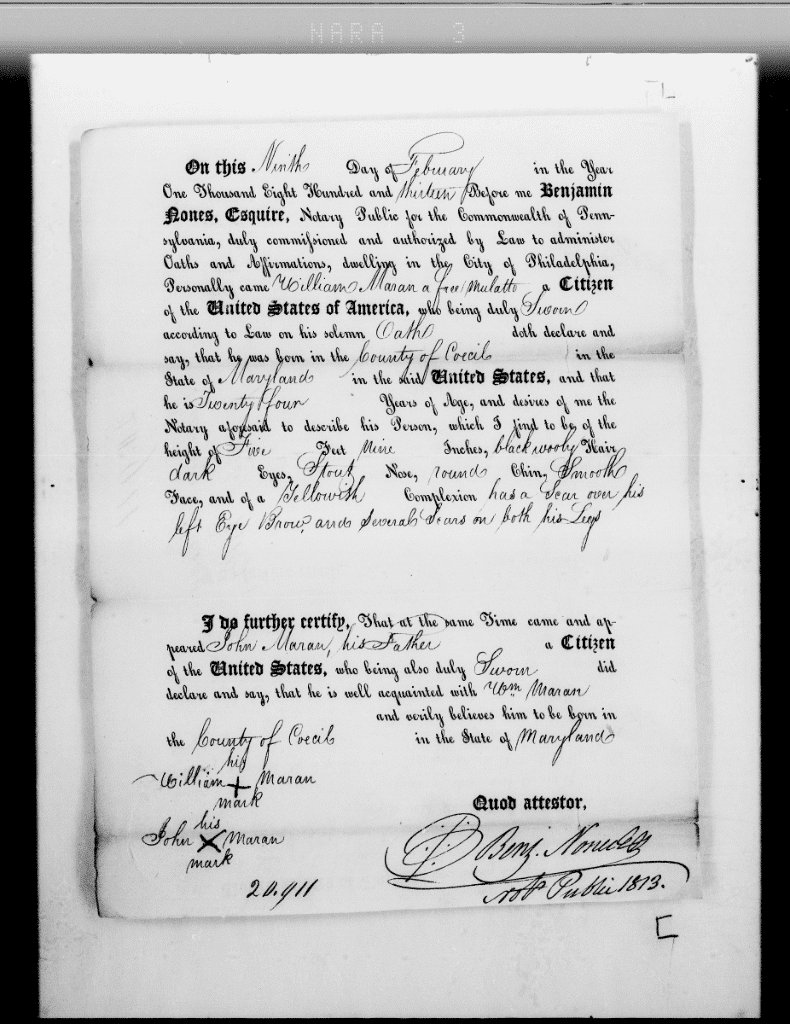 NARA 3
On this Ninth Day of February in the Year
One Thousand Eight Hundred and thirteen Before me Benjamin
Nones, Esquire, Notary Public for the Commonwealth of Penn-
sylvania, duly commissioned and authorized by Law to administer
Oaths and Affirmations, dwelling in the City of Philadelphia,
Personally came William Maran a free Mulatto a Citizen
of the United States of America, who being duly Sworn
according to Law on his solemn Oath doth declare and
say, that he was born in the County of Coecil in the
State of Maryland in the said United States, and that
he is Twenty four Years of Age, and desires of me the
Notary aforesaid to describe his Person, which I find to be of the
height of Five Feet Nine Inches, black wooly Hair
dark Eyes, Stout Nose, round Chin, Smooth
Face, and of a Yellowish Complexion has a Scar over his
left Eye Brow, and Several Scars on both his Legs
I do further certify, That at the same Time came and ap-
peared John Maran, his Father a Citizen
of the United States, who being also duly Sworn did
declare and say, that he is well acquainted with Wm Maran
and verily believes him to be born in
the County of Coecil in the State of Maryland
his
William + Maran
mark
Quod attestor,
his
John X Maran
mark
Benj. Nones
Not Public 1813.
20.911